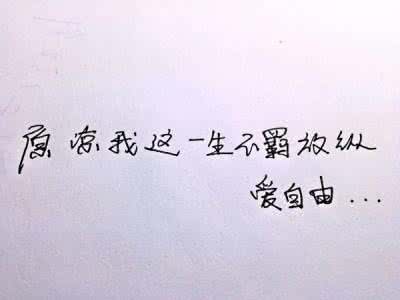 原谅我这一生不羁放纵
爱自由...